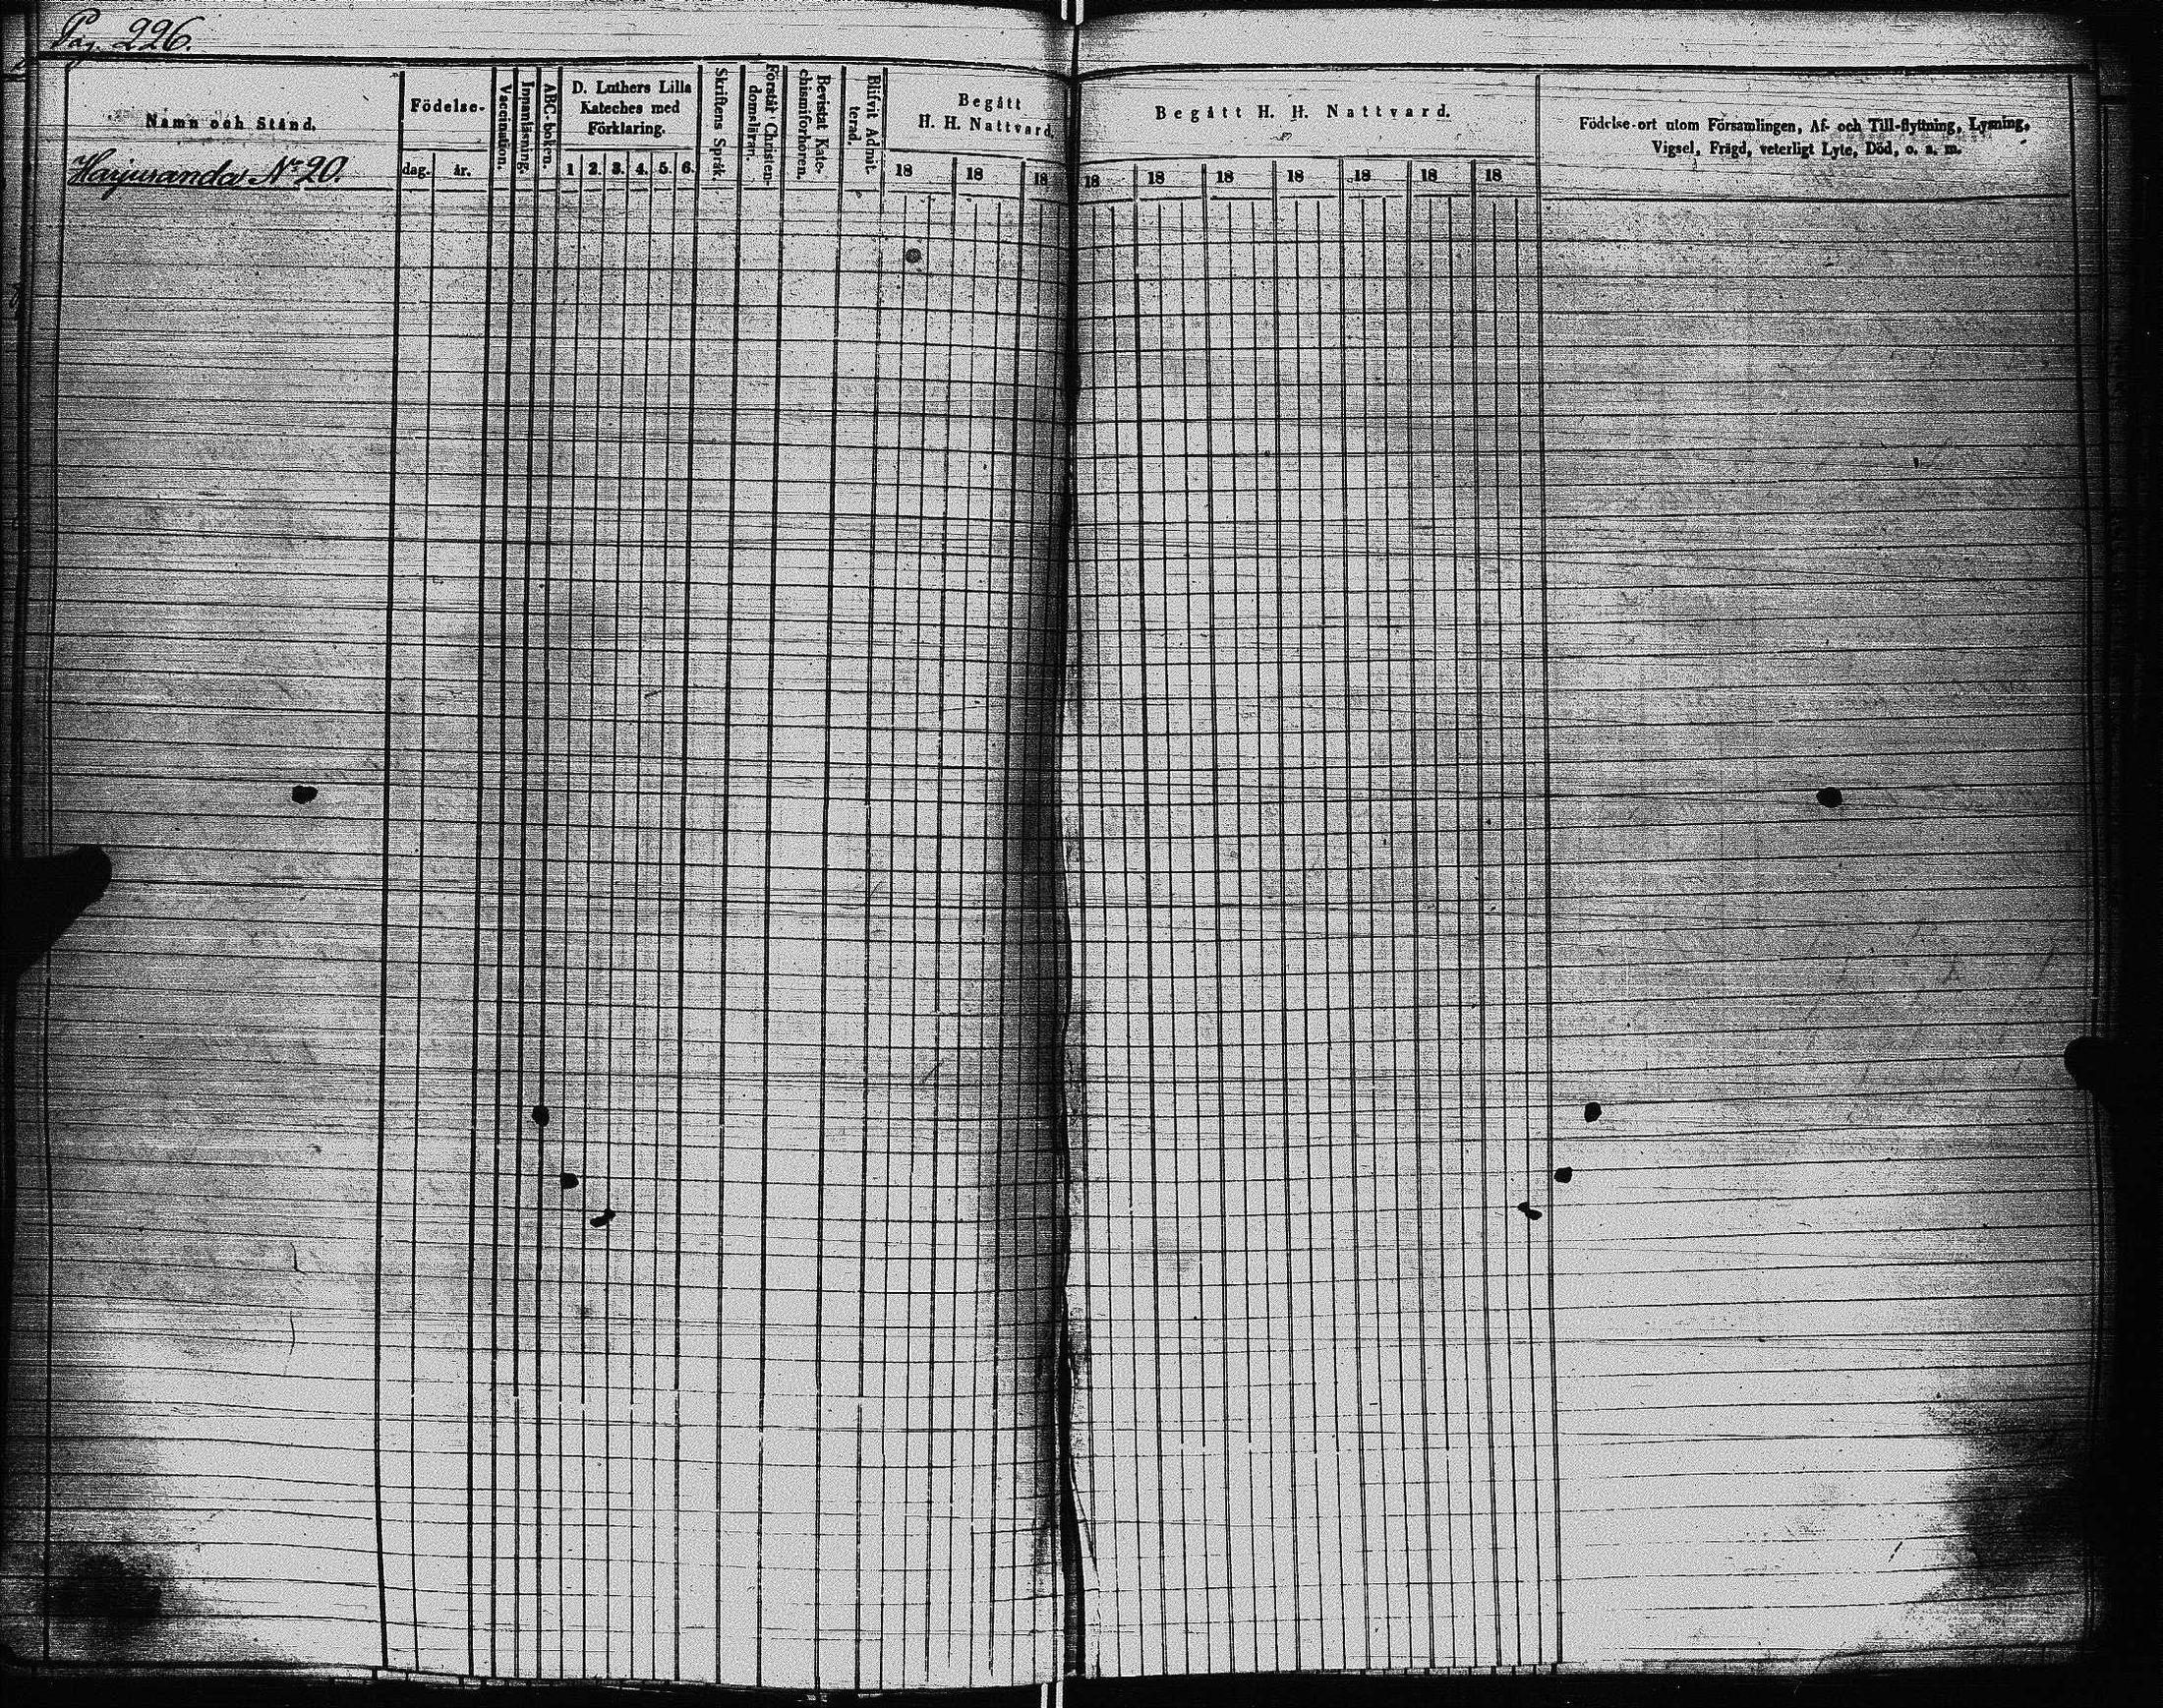 Pag. 226.
Namn och Stånd.
Harjuranda No 20.
Födelse-
dag.
år.
Vaccination.
Innanläsning.
ABC-boken.
D. Luthers Lilla
Kateches med
Förklaring.
1 2. 3. 4. 5. 6.
Skriftens Språk.
Förstår Christen-
domsläran.
Bevistat Kate-
chismiförhören.
Blifvit Admit-
terad.
Begått
H. H. Nattvard.
18 18 18
Begått H. H. Nattvard.
18 18 18 18 18 18 18
Födelse-ort utom Församlingen, Af- och Till-flyttning, Lysning,
Vigsel, Frägd, veterligt Lyte, Död, o. s. m.